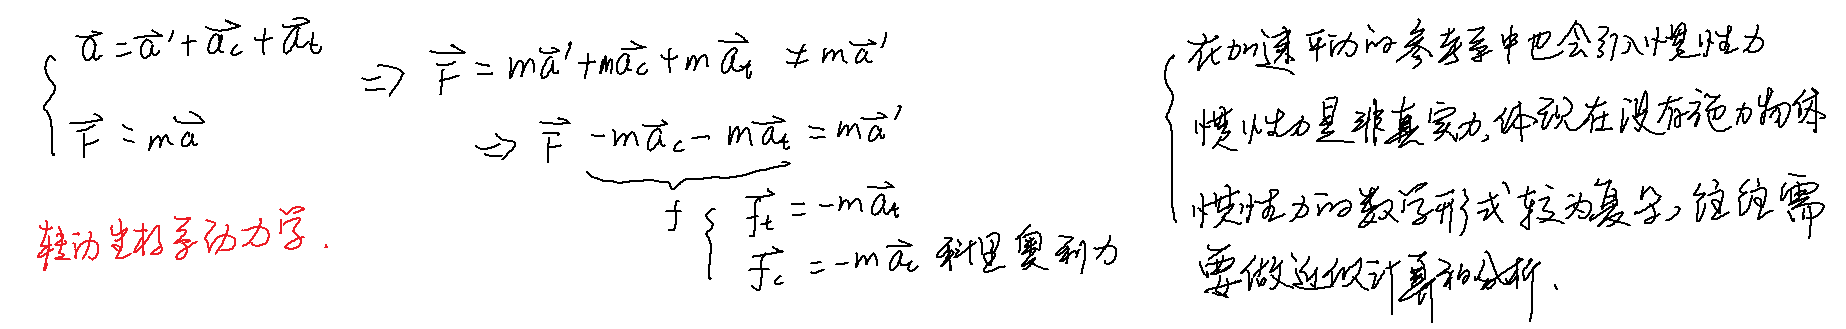 a⃗ = a⃗' + a⃗c + a⃗t
F⃗ = ma⃗
⇒ F⃗ = ma⃗' + ma⃗c + ma⃗t ≠ ma⃗'
⇒ F⃗ - ma⃗c - ma⃗t = ma⃗'
f
f⃗t = -ma⃗t
f⃗c = -ma⃗c 科里奥利力
转动坐标系动力学.
在加速平动的参考系中也会引入惯性力
惯性力是非真实力,体现在没有施力物体
惯性力的数学形式较为复杂,往往需
要做近似计算和分析.